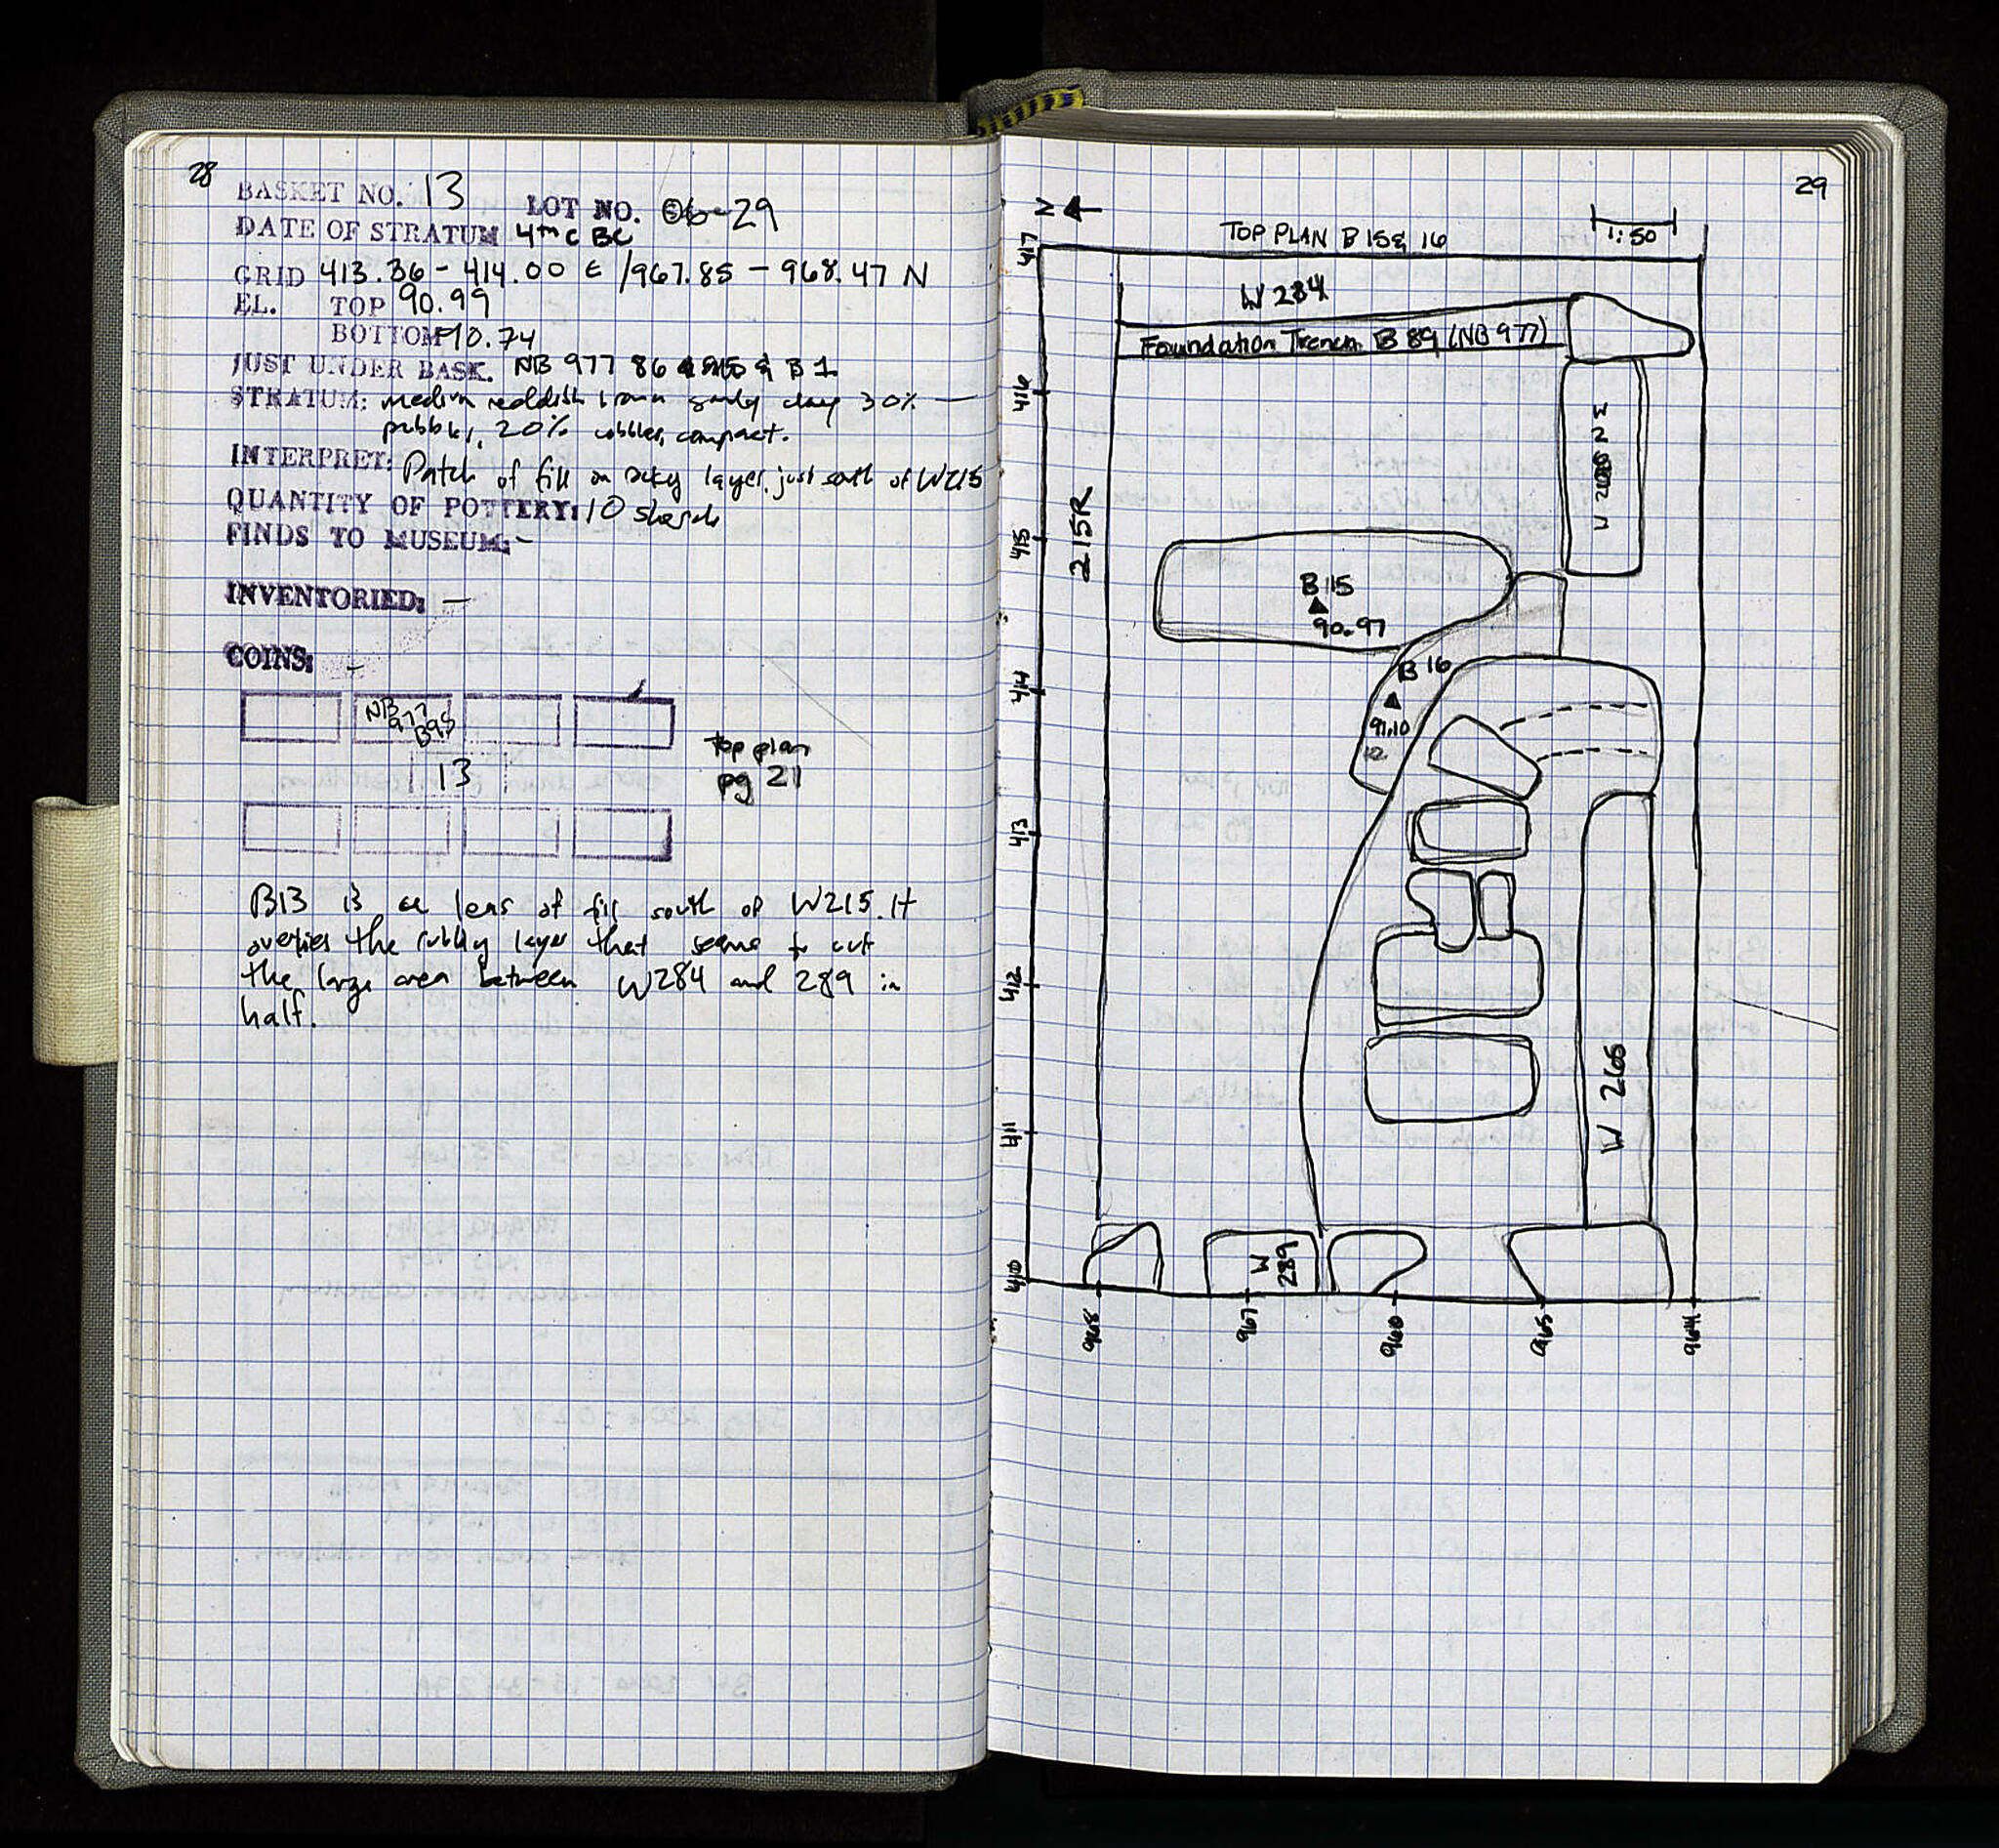 28
BASKET NO. 13 LOT NO. 06-29
DATE OF STRATUM 4th C BC
GRID 413.36 - 414.00 E / 967.85 - 968.47 N
EL. TOP 90.99
BOTTOM 90.74
JUST UNDER BASK. NB 977 86 & B 1
STRATUM: medium reddish brown sandy clay 30% —
pebbles, 20% cobbles, compact.
INTERPRET: Patch of fill on rocky layer, just south of W215
QUANTITY OF POTTERY: 10 sherds
FINDS TO MUSEUM: -
INVENTORIED: —
COINS: -
NB 977 B95
13
top plan
pg 21
B13 is a lens of fill south of W215. It
overlies the rubbly layer that seems to cut
the large area between W284 and 289 in
half.
29
N
TOP PLAN B 15 & 16
1:50
417
W 284
Foundation Trench B 89 (NB 977)
416
415
215R
B 15
90.97
B 16
91.10
414
413
412
411
W 265
W 289
410
968
967
966
965
964